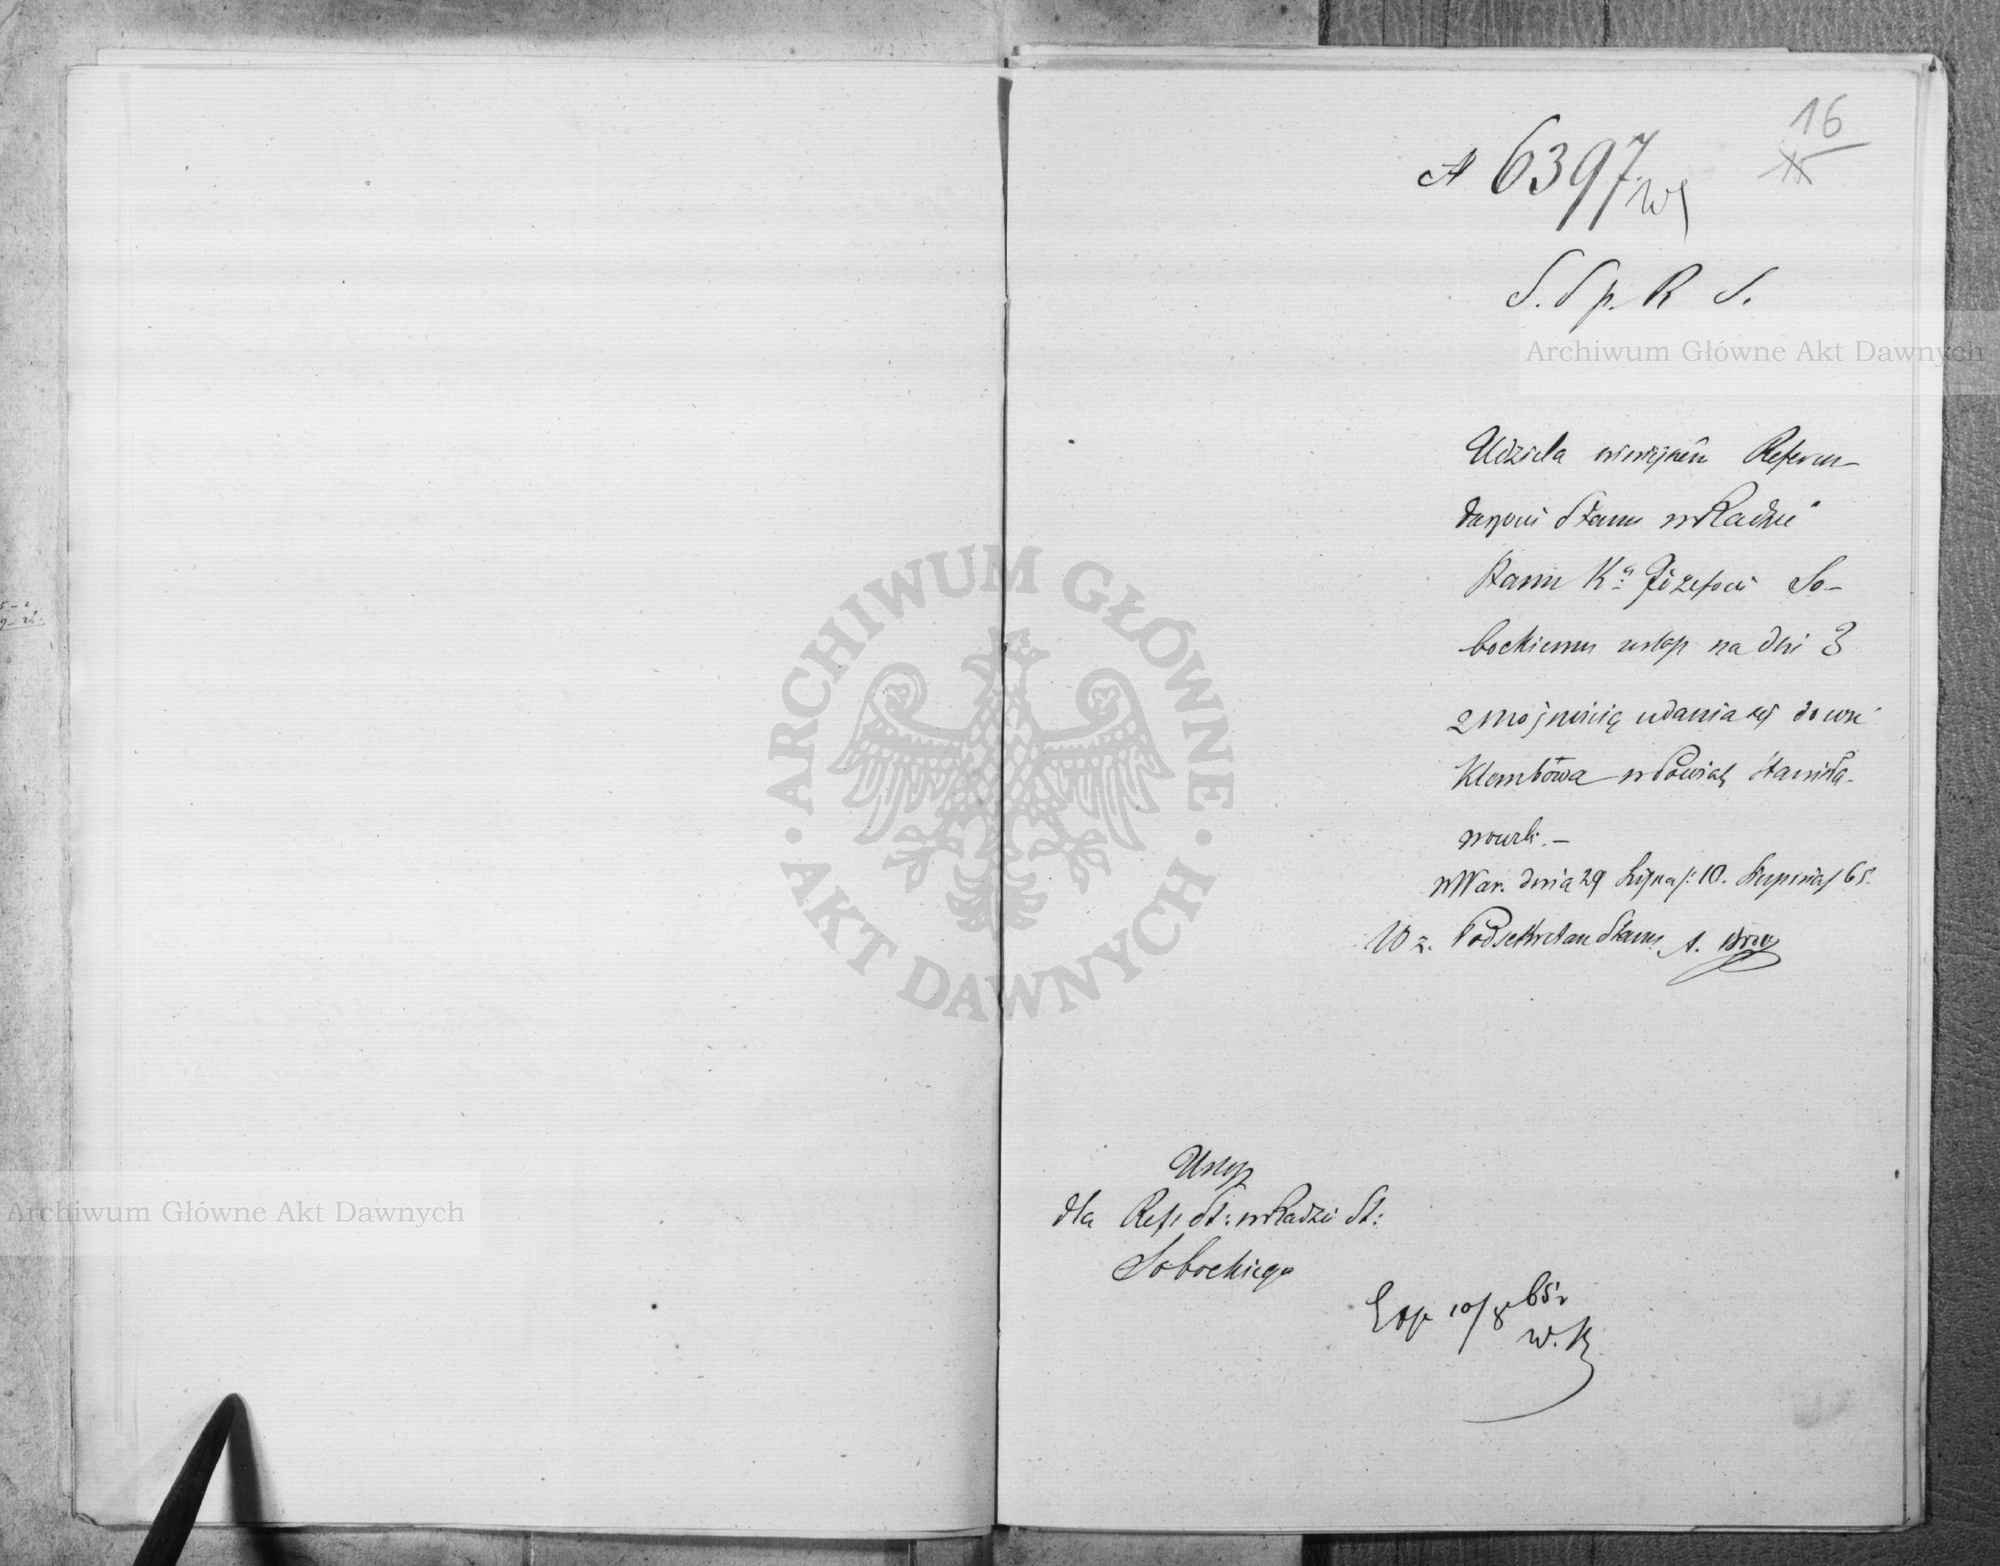 16
15
№ 6397
S. S p. R S.
Udziela niniejszem Referen-
darzowi Stanu w Radzie
Stanu K-a Józefowi So-
bockiemu urlop na dni 3
z możnością udania się do wsi
Klembowa w Powiecie Stanisła-
wowsk. —
w War. dnia 29 Lipca/: 10. Sierpnia/ 65.
W z. Podsekretarz Stanu A.
Urlop
dla Ref: St: w Radzie St:
Sobockiego
Exp 10/8 65 r
W. K
Archiwum Główne Akt Dawnych
Archiwum Główne Akt Dawnych
ARCHIWUM GŁÓWNE
AKT DAWNYCH